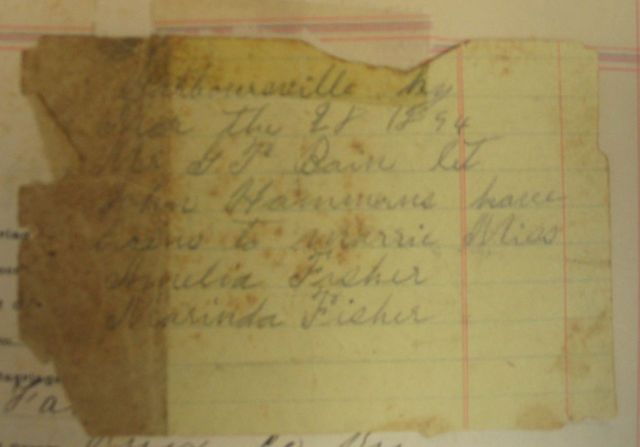 Barboursville Ky
Mar the 28 1894
Mr G P Bain let
John Hammons have
licens to marrie Miss
Amelia Fisher
Marinda Fisher